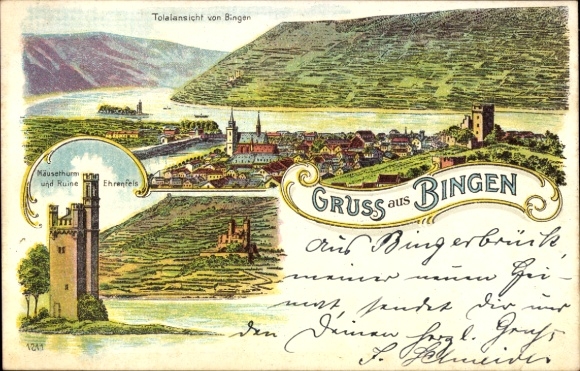 Totalansicht von Bingen
Mäusethurm
und Ruine Ehrenfels
GRUSS aus BINGEN
Aus Bingerbrück,
meiner neuen Hei-
mat, sendet Dir und
den Deinen herzl. Gruß
J. Schneider
1211